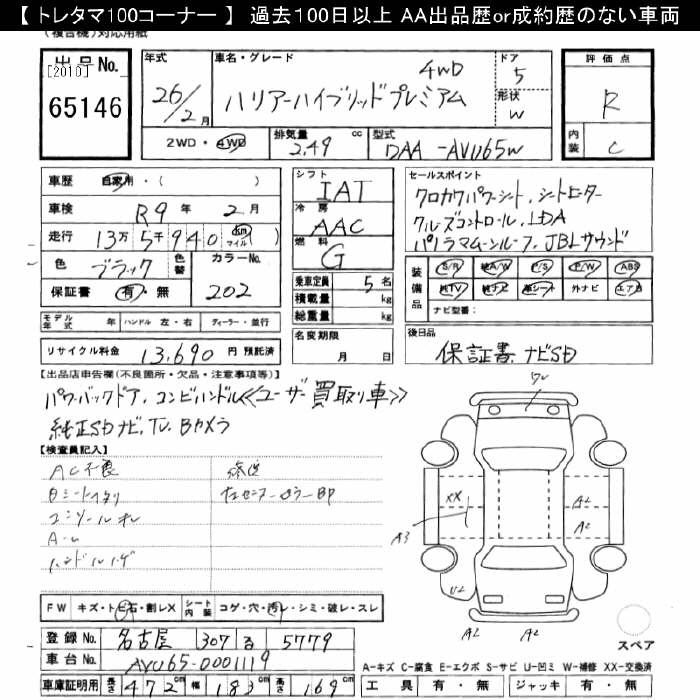 【 トレタマ100コーナー 】 過去100日以上 AA出品歴or成約歴のない車両
(複合機)対応用紙
出品No.
[2010]
65146
年式
26/2月
車名・グレード
ハリアーハイブリッドプレミアム 4WD
ドア
5
形状
W
評価点
R
内装
C
2WD・4WD
排気量
2.49 cc
型式
DAA-AVU65W
車歴 自家用・( )
車検 R9年 2月
走行 13万5千940 km マイル ( )
色 ブラック 色替
カラーNo.
202
保証書 有・無
シフト
IAT
冷房
AAC
燃料
G
乗車定員 5名
積載量 kg
総重量 kg
セールスポイント
クロカワパワーシート、シートヒーター
クルーズコントロール、LDA
パノラマムーンルーフ、JBLサウンド
装備品
S/R 純A/W P/S P/W ABS
純TV 純ナビ 革シート 外ナビ エアB
ナビ型番:
モデル年式 年 ハンドル 左・右 ディーラー・並行
リサイクル料金 13,690 円 預託済
名変期限
月 日
後日品
保証書、ナビSD
【出品店申告欄(不良箇所・欠品・注意事項等)】
パワーバックドア、コンビハンドル≪ユーザー買取り車≫
純正SDナビ、TV、Bカメラ
【検査員記入】
AC不良
修復
ハンドルハゲ
W
XX
A3
A2
A2
U2
A2
A2
FW キズ・トビ石・割レX シート内装 コゲ・穴・汚レ・シミ・破レ・スレ
登録No. 名古屋 307 る 5779
車台No. AVU65-0001119
車庫証明用 長さ 472cm 幅 183cm 高さ 169cm
スペア
A-キズ C-腐食 E-エクボ S-サビ U-凹ミ W-補修 XX-交換済
工具 有・無 ジャッキ 有・無